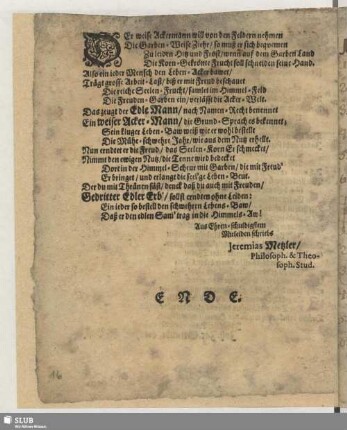 Er weise Ackermann will von den Feldern nehmen
Die Garben-Weise Ziehr/ so muß er sich bequemen
Zu leiden Hitz und Frost/ wenn auf dem Garben Land
Die Korn-Gekrönte Frucht soll schneiden seine Hand.
Also ein ieder Mensch den Leben-Acker bawet/
Trägt grosse Arbeit-Last/ biß er mit Freud beschauet
Die reiche Seelen-Frucht/ samlet im Himmel-Feld
Die Freuden-Garben ein/ verläßt die Acker-Welt.
Das zeugt der Edle Mann/ nach Namen-Recht benennet
Ein weiser Acker-Mann/ die Grund-Sprach es bekennet/
Sein kluger Leben-Baw weiß wie er wohl bestellt
Die Mühe-schwehre Jahr/ wie aus dem Nutz erhellt.
Nun erndtet er die Freud/ das Seelen-Korn Er schmecket/
Nimmt den ewigen Nutz/ die Tenne wird bedecket
Dort in der Himmel-Scheur mit Garben/ die mit Freud'
Er bringet/ und erlangt die seel'ge Leben-Beut.
Der du mit Thränen säst/ denck daß du auch mit Freuden/
Gedritter Edler Erb'/ sollst erndten ohne Leiden:
Ein ieder so bestell den schwehren Lebens-Baw/
Daß er den edlen Sam' trag in die Himmels-Aw!
Aus Ehren-schuldigstem
Mitleiden schriebs
Jeremias Metzler/
Philosoph. & Theo-
soph. Stud.
ENDE.
SLUB
Wir führen Wissen.